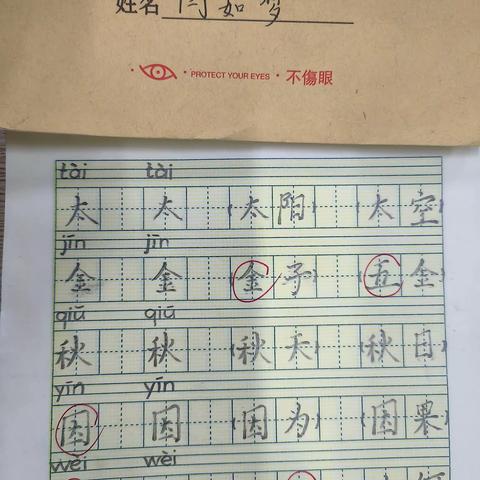 姓名 闫如梦
PROTECT YOUR EYES · 不傷眼
tài tài
太 太 (太阳) (太空)
jīn jīn
金 金 (金子) (五金)
qiū qiū
秋 秋 (秋天) (秋日)
yīn yīn
因 因 (因为) (因果)
wèi wèi